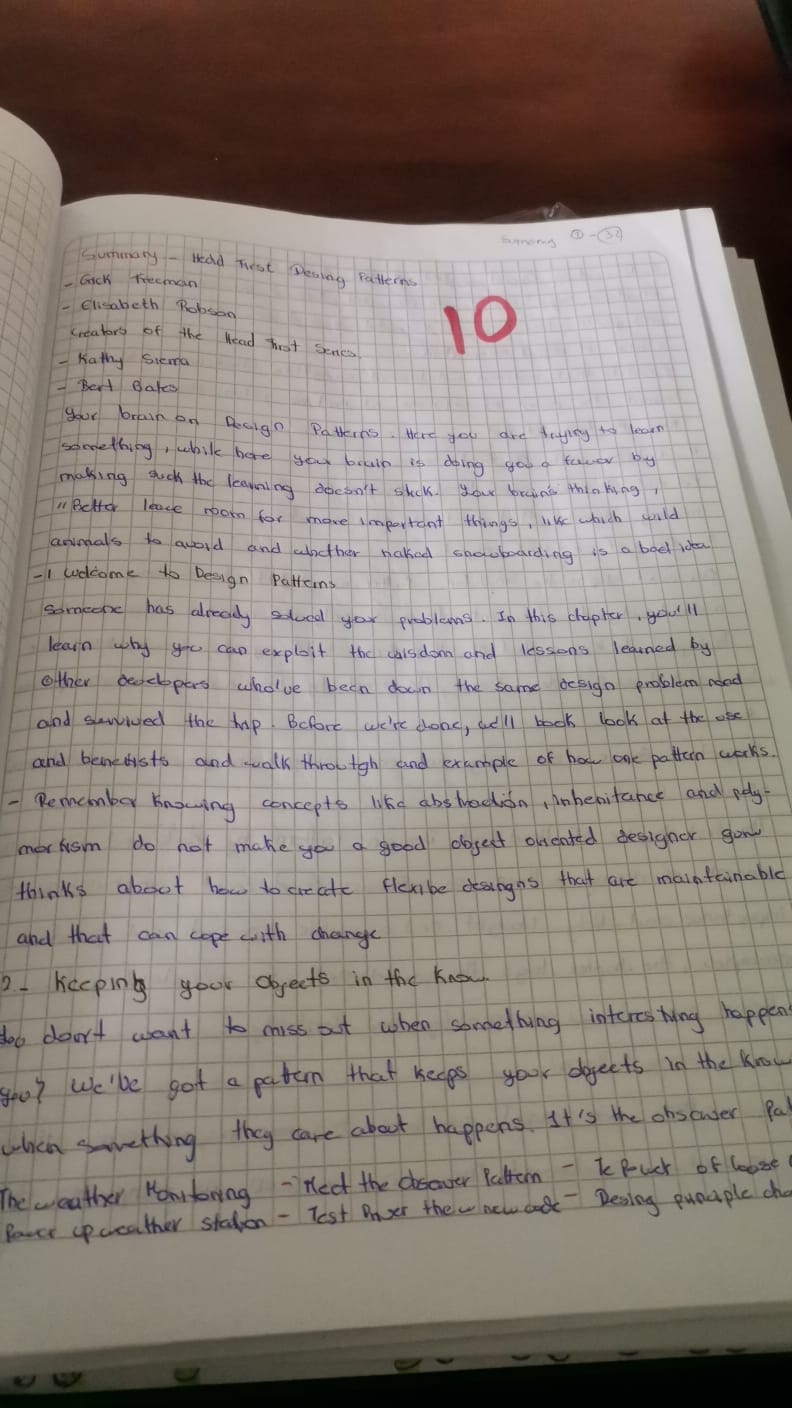 Summary ① - 32
Summary - Head First Desing Patterns
- Erick Freeman
- Elisabeth Robson
10
Creators of the Head First Series
- Kathy Sierra
- Bert Bates
Your brain on Design Patterns. Here you are trying to learn
something, while here your brain is doing you a favor by
making suck the learning doesn't stick. Your brain's thinking,
"Better leave room for more important things, like which wild
animals to avoid and whether naked snowboarding is a bad idea
-1 Welcome to Design Patterns
Someone has already solved your problems. In this chapter, you'll
learn why you can exploit the wisdom and lessons learned by
other developers who've been down the same design problem road
and survived the trip. Before we're done, we'll look at the use
and and walk through and example of how one pattern works.
- Remember Knowing concepts like abstractión, inheritance and poly-
morfism do not make you a good object oriented designer
thinks about how to create flexibe desingns that are maintainable
and that can cope with change
2- Keeping your Objects in the Know
You don't want to miss out when something interesting happens
you? We've got a pattern that keeps your objects in the Know
when something they care about happens. It's the observer Pat
The weather Monitoring - Meet the observer Pattern - of loose
Power up weather station - Test the new code - Desing principle